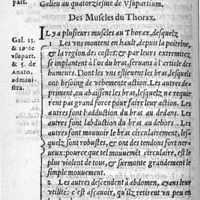 part.
Galien au quatorziesme de Vsupartium.
Des Muscles du Thorax.
Gal. 13.
& 1 de
vsupart.
& 5. de
Anato.
admi-
stra.
IL y a plusieurs muscles au Thorax, desquelz
1 Les vns montent en hault, depuis la poitrine,
& la region des costes: & par leurs extremitez
se implantent à l'os du bras seruans à l'article des
humeurs. Dont les vns esleuent les bras, lesquels
ont besoing de vehement action. Les autres de-
priment, ou abaissent les bras, lesquelz ne requie-
rent pas grand force pour faire leur action. Les
autres sont l'adduction du bras au dedans. Les
autres font labduction du bras au dehors. Les
autres font mouuoir le bras circulairement, les-
quelz sont robustes, & ont des tendons fort ner-
ueux: pource que le mouuement circulaire, est
plus violent de tous, & surmonte grandement le
simple mouuement.
2 Les autres descendent à l'abdomen, ayans leur
vtilité: est asçauoir, qu'ilz retirent vn peu en